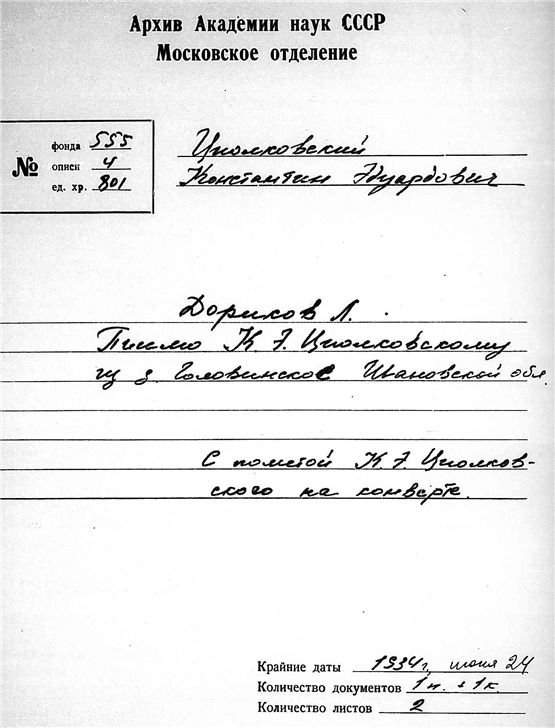 Архив Академии наук СССР
Московское отделение
№
фонда 555
описи 4
ед. хр. 801
Циолковский
Константин Эдуардович
Дориков Л.
Письмо К. Э. Циолковскому
из д. Головинское Ивановской обл.
С пометой К. Э. Циолков-
ского на конверте.
Крайние даты 1934г, июня 24
Количество документов 1п. + 1к.
Количество листов 2